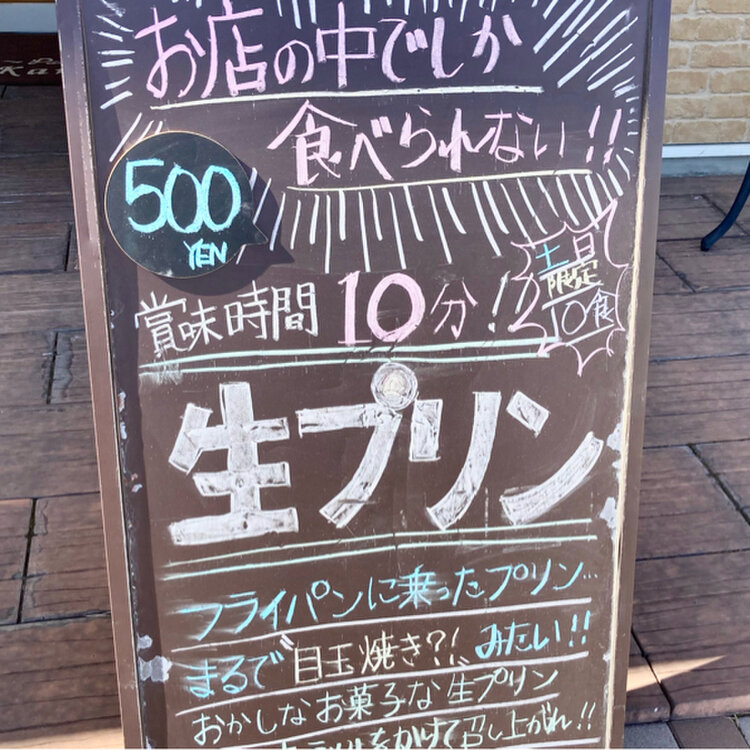 お店の中でしか
食べられない!!
500
YEN
土日
限定
10食
賞味時間 10分!!
生プリン
フライパンに乗ったプリン...
まるで"目玉焼き?!"みたい!!
おかしなお菓子な生プリン
をかけて召し上がれ!!